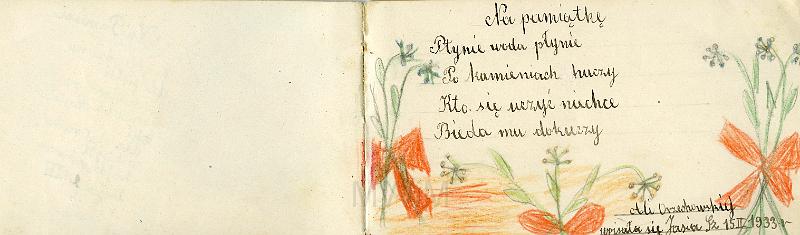 Na pamiątkę
Płynie woda płynie
Po kamieniach huczy
Kto się uczyć niechce
Bieda mu dokuczy
Ali Orzechowskiej
wpisała się Jasia Sz 15 II 1933 r